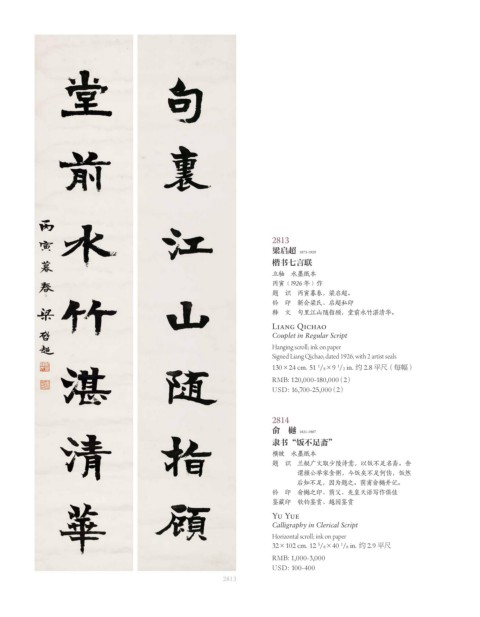 句裏江山随指顧
堂前水竹湛清華
丙寅暮春 梁啓超
2813
梁启超 1873-1929
楷书七言联
立轴 水墨纸本
丙寅（1926年）作
题 识 丙寅暮春，梁启超。
钤 印 新会梁氏、启超私印
释 文 句里江山随指顾，堂前水竹湛清华。
LIANG QICHAO
Couplet in Regular Script
Hanging scroll; ink on paper
Signed Liang Qichao, dated 1926, with 2 artist seals
130×24 cm. 51 1/8×9 1/2 in. 约2.8平尺（每幅）
RMB: 120,000-180,000（2）
USD: 16,700-25,000（2）
2814
俞 樾 1821-1907
隶书“饭不足斋”
横披 水墨纸本
YU YUE
Calligraphy in Clerical Script
Horizontal scroll; ink on paper
32×102 cm. 12 5/8×40 1/8 in. 约2.9平尺
RMB: 1,000-3,000
USD: 100-400
2813